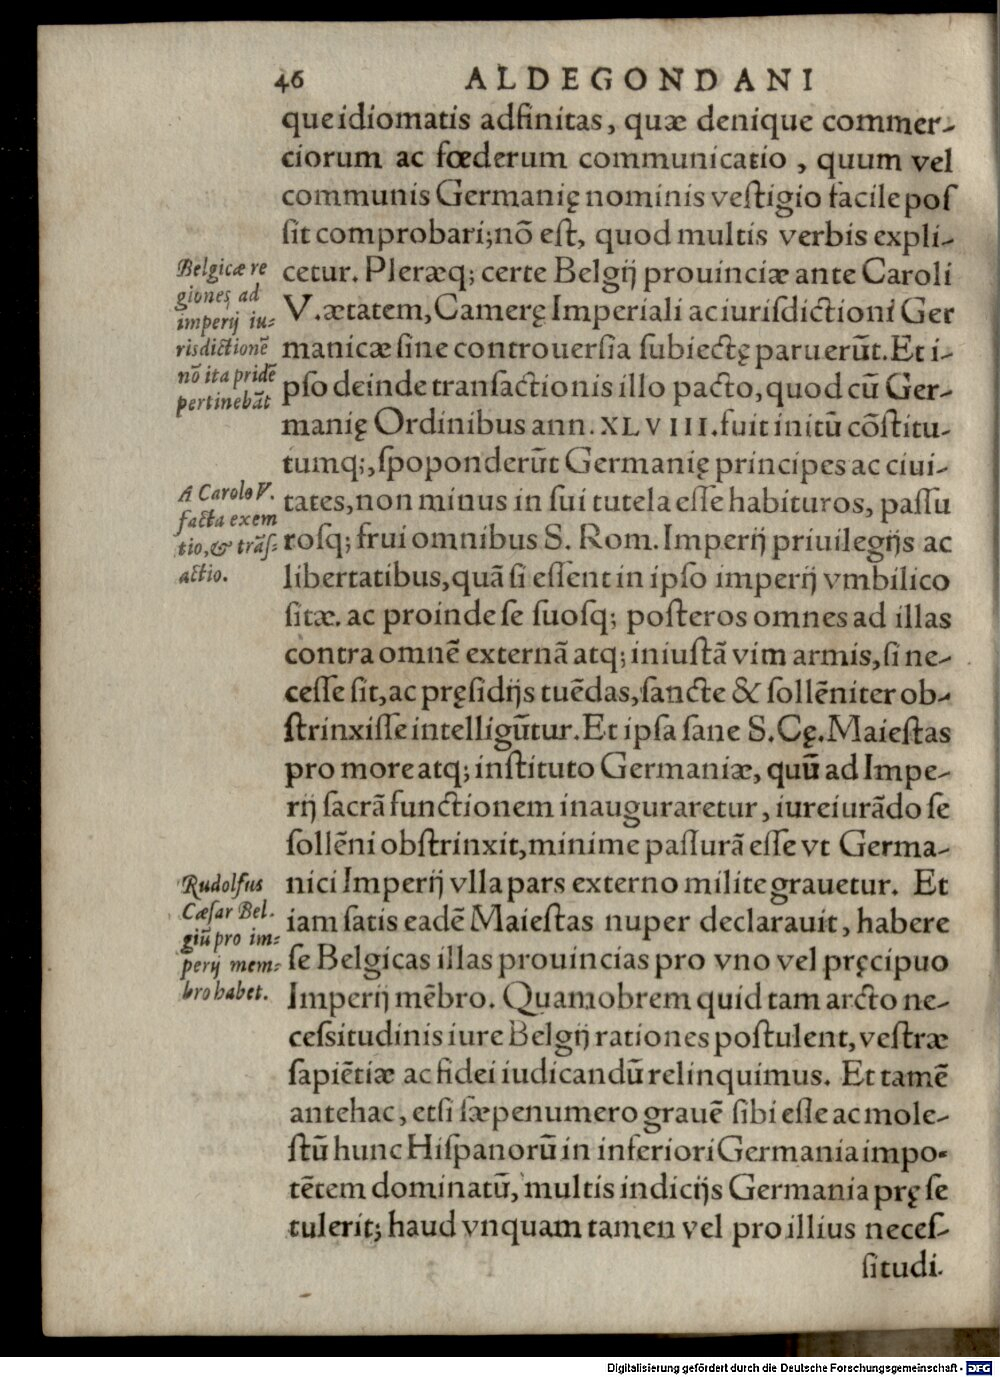 46 ALDEGONDANI
que idiomatis adfinitas, quæ denique commer-
ciorum ac fœderum communicatio, quum vel
communis Germanię nominis veſtigio facile poſ
ſit comprobari; nō eſt, quod multis verbis expli-
cetur. Pleræq; certe Belgij prouinciæ ante Caroli
V. ætatem, Camerę Imperiali ac iuriſdictioni Ger
manicæ ſine controuerſia ſubiectę paruerūt. Et i-
pſo deinde tranſactionis illo pacto, quod cū Ger-
manię Ordinibus ann. XLVIII. fuit initū cōſtitu-
tumq;, ſpoponderūt Germanię principes ac ciui-
tates, non minus in ſui tutela eſſe habituros, paſſu
roſq; frui omnibus S. Rom. Imperij priuilegijs ac
libertatibus, quā ſi eſſent in ipſo imperij vmbilico
ſitæ. ac proinde ſe ſuoſq; poſteros omnes ad illas
contra omnē externā atq; iniuſtā vim armis, ſi ne-
ceſſe ſit, ac pręſidijs tuēdas, ſancte & ſollēniter ob-
ſtrinxiſſe intelligūtur. Et ipſa ſane S. Cę. Maieſtas
pro more atq; inſtituto Germaniæ, quū ad Impe-
rij ſacrā functionem inauguraretur, iureiurādo ſe
ſollēni obſtrinxit, minime paſſurā eſſe vt Germa-
nici Imperij vlla pars externo milite grauetur. Et
iam ſatis eadē Maieſtas nuper declarauit, habere
ſe Belgicas illas prouincias pro vno vel pręcipuo
Imperij mēbro. Quamobrem quid tam arcto ne-
ceſsitudinis iure Belgij rationes poſtulent, veſtræ
ſapiētiæ ac fidei iudicandū relinquimus. Et tamē
antehac, etſi ſæpenumero grauē ſibi eſſe ac mole-
ſtū hunc Hiſpanorū in inferiori Germania impo-
tētem dominatū, multis indicijs Germania pręſe
tulerit; haud vnquam tamen vel pro illius neceſ-
ſitudi.
Belgicæ re
giones ad
imperij iu-
risdictionē
nō ita pridē
pertinebāt
A Carolo V.
facta exem
tio, & trāſ-
actio.
Rudolfus
Cæſar Bel.
giū pro im-
perij mem-
bro habet.
Digitalisierung gefördert durch die Deutsche Forschungsgemeinschaft - DFG